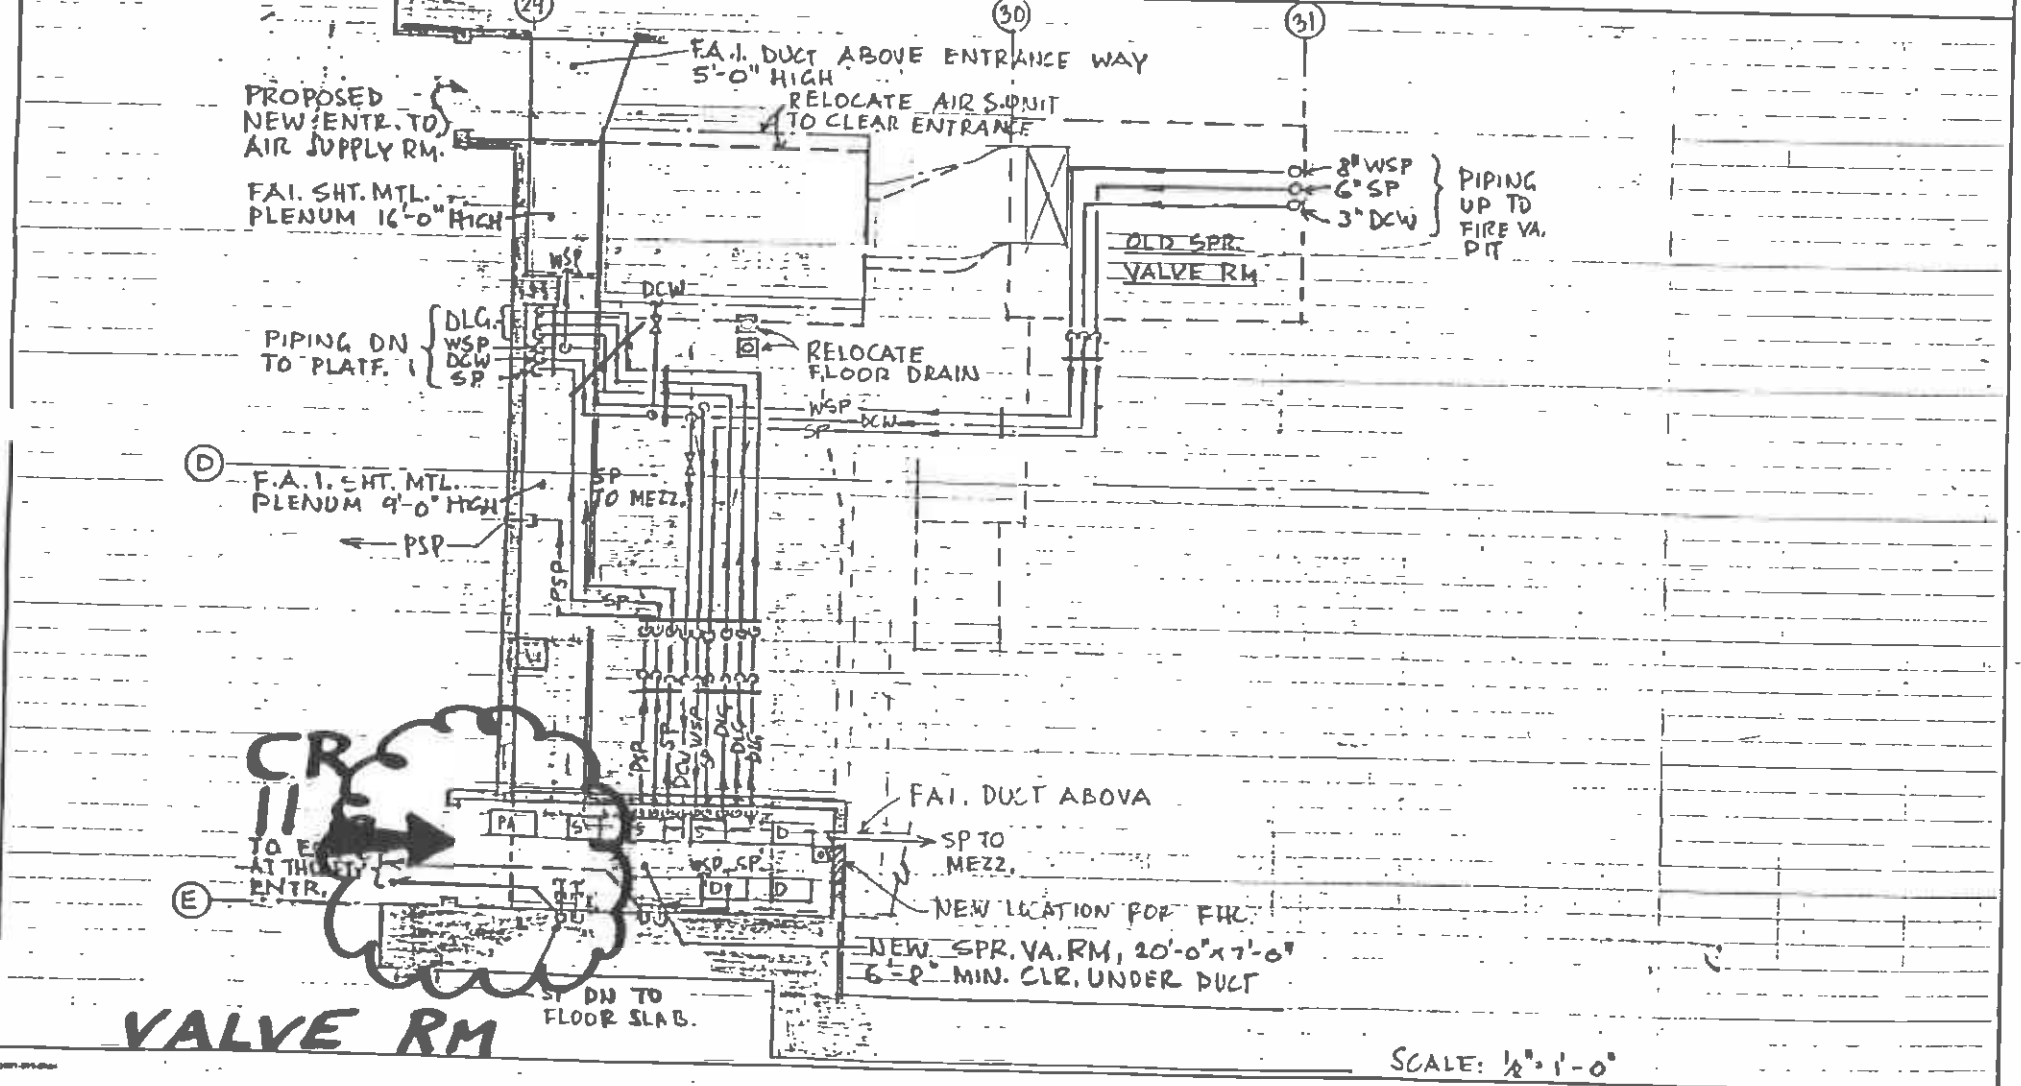 29
30
31
F.A.I. DUCT ABOVE ENTRANCE WAY
5'-0" HIGH
PROPOSED
NEW ENTR. TO
AIR SUPPLY RM.
RELOCATE AIR S. UNIT
TO CLEAR ENTRANCE
8" WSP
6" SP
3" DCW
PIPING
UP TO
FIRE VA.
PIT
FAI. SHT. MTL.
PLENUM 16'-0" HIGH
OLD SPR.
VALVE RM
WSP
DCW
PIPING DN
TO PLATF. 1
DLG.
WSP
DCW
SP
RELOCATE
FLOOR DRAIN
WSP
DCW
SP
D
F.A.I. SHT. MTL.
PLENUM 9'-0" HIGH
SP
TO MEZZ.
PSP
PSP
SP
PSP
SP
DCW
WSP
SP
DLG
DLG
DLG
CR
11
FAI. DUCT ABOVA
PA
S
S
S
D
SP TO
MEZZ.
TO
AT TH
ENTR.
WSP SP
D
D
E
NEW LOCATION FOR FHC.
NEW SPR. VA. RM, 20'-0" x 7'-0"
6'-8" MIN. CLR. UNDER DUCT
SP DN TO
FLOOR SLAB.
VALVE RM
SCALE: 1/8" = 1'-0"